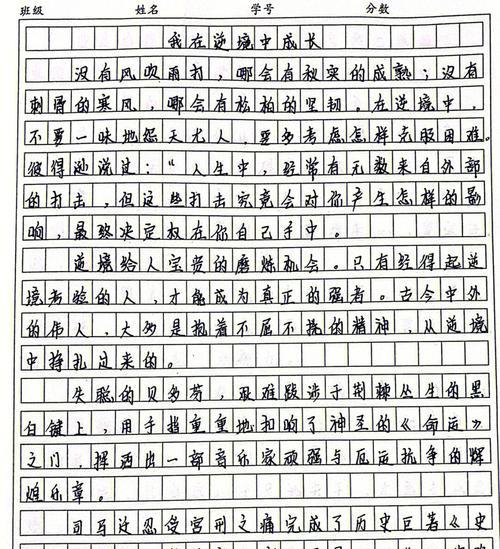 班级 姓名 学号 分数
我在逆境中成长
没有风吹雨打，哪会有秋实的成熟；没有
刺骨的寒风，哪会有松柏的坚韧。在逆境中，
不要一味地怨天尤人，要多考虑怎样克服困难。
彼得逊说过：“人生中，经常有无数来自外部
的打击，但这些打击究竟会对你产生怎样的影
响，最终决定权在你自己手中。
逆境给人宝贵的磨炼机会。只有经得起逆
境考验的人，才能成为真正的强者。古今中外
的伟人，大多是抱着不屈不挠的精神，从逆境
中挣扎过来的。
失聪的贝多芬，艰难跋涉于荆棘丛生的黑
白键上，用手指重重地扣响了神圣的《命运》
之门，挥洒出一部音乐家顽强与厄运抗争的辉
煌乐章。
司马迁忍受宫刑之痛完成了历史巨著《史